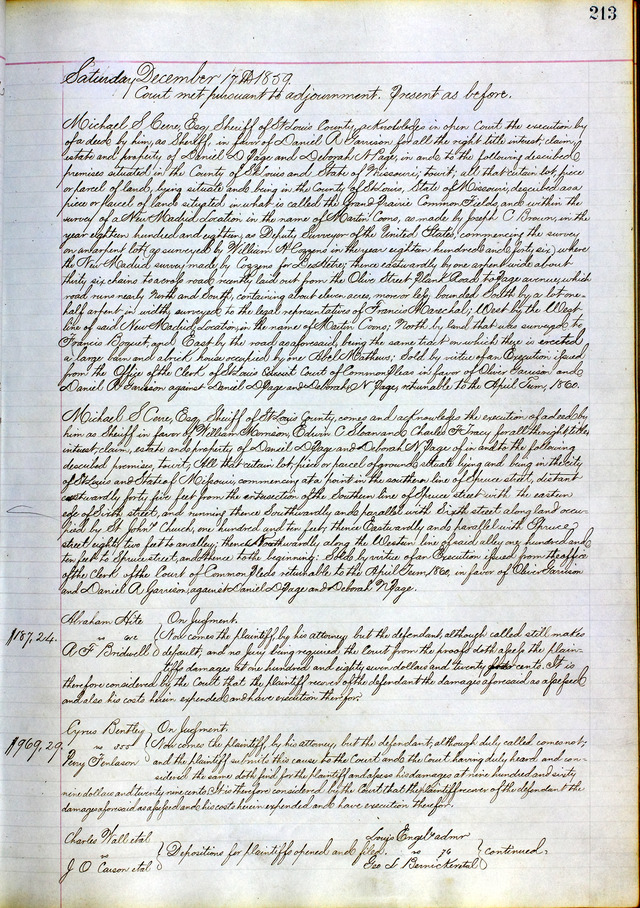 213
Saturday December 17th 1859
Court met pursuant to adjournment. Present as before.
Michael S Cerre, Esq, Sheriff of St Louis County, acknowledges in open Court the execution by
of a deed by him, as Sheriff, in favor of Daniel R Garrison for all the right title interest, claim,
estate and property of Daniel D Page and Deborah N Page, in and to the following described
premises situated in the County of St Louis and State of Missouri, towit; all that certain lot, piece
or parcel of land, lying situate and being in the County of St Louis, State of Missouri, described as a
piece or parcel of land situated in what is called the Grand Prairie Common Fields, and within the
survey of a New Madrid Location in the name of Martin Coons, as made by Joseph C Brown, in the
year eighteen hundred and eighteen, as Deputy Surveyor of the United States, commencing the survey
on an arpent lot, as surveyed by William H Cozzens in the year eighteen hundred and forty six, where
the New Madrid survey made by Cozzens for DesHetre; thence eastwardly by one arpent wide about
thirty six chains to a cross road recently laid out from the Olive Street Plank Road to Page avenue, which
road runs nearly North and South, containing about eleven acres, more or less, bounded South by a lot one-
half arpent in width surveyed to the legal representatives of Francis Marechal; West by the West
line of said New Madrid Location, in the name of Martin Coons; North by land that was surveyed to
Francis and East by the road as aforesaid, being the same tract on which there is erected
a large barn and a brick house occupied by one Abel Mathews; Sold by virtue of an Execution issued
from the Office of the Clerk of St Louis Court of Common Pleas in favor of Oliver Garrison and
Daniel R Garrison against Daniel D Page and Deborah N Page, returnable to the April Term, 1860.
Michael S Cerre, Esq, Sheriff of St Louis County, comes and acknowledges the execution of a deed by
him as Sheriff in favor of William Morrison, Edwin C Sloan and Charles F Tracy, for all the right title,
interest, claim, estate and property of Daniel D Page and Deborah N Page of in and to the following
described premises, towit, All that certain lot, piece or parcel of ground situate lying and being in the City
of St Louis and State of Missouri, commencing at a point in the southern line of Spruce street, distant
eastwardly forty five feet from the intersection of the Southern line of Spruce street with the eastern
edge of Sixth street, and running thence Southwardly and parallel with Sixth street along land occu-
pied by St John's Church, one hundred and ten feet; thence Eastwardly and parallel with Spruce
street eighty two feet to an alley; thence Northwardly along the Western line of said alley one hundred and
ten feet to Spruce street, and thence to the beginning: Sold by virtue of an Execution issued from the office
of the Clerk of the Court of Common Pleas returnable to the April Term, 1860, in favor of Oliver Garrison
and Daniel R Garrison, against Daniel D Page and Deborah N Page.
Abraham Hite } On Judgment.
$187,24. vs { Now comes the plaintiff, by his attorney but the defendant, although called still makes
A F Bridwell } default; and no jury being required, the Court from the proofs doth assess the plain-
tiffs damages at one hundred and eighty seven dollars and twenty cents. It is
therefore considered by the Court that the plaintiff recover of the defendant the damages aforesaid as assessed
and also his costs herein expended and have execution therefor.
Cyrus Bentley } On Judgment.
$969,29. vs { Now comes the plaintiff, by his attorney, but the defendant, although duly called comes not;
Perry Tomlason } and the plaintiff submits this cause to the Court and the Court having duly heard and con-
sidered the same doth find for the plaintiff and assess his damages at nine hundred and sixty
nine dollars and twenty nine cents. It is therefore considered by the Court that the plaintiff recover of the defendant the
damages aforesaid as assessed and his costs herein expended and have execution therefor.
Charles Wall etal } Louis Engel admr }
vs } Depositions for plaintiffs opened and filed. vs 76 } continued.
J O Carson etal } Geo L Bernicker etal }